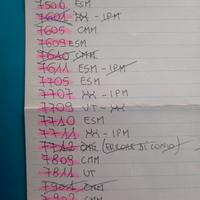 7500 ESM
7601 XX - IPM
7605 CMM
7609 ESM
7610 CMM
7611 ESM - IPM
7705 ESM
7707 XX - IPM
7709 UT - XX
7710 ESM
7711 XX - IPM
7712 CMM (ERRORE DI CONIO)
7809 CMM
7811 UT
7901 CMM
7902 CMM